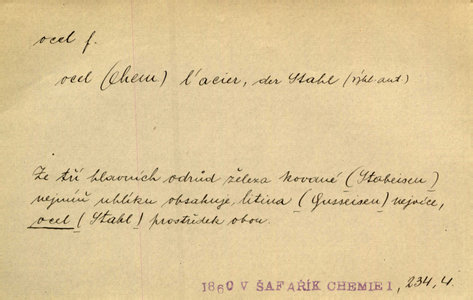 ocel f.
ocel (Chem) l'acier, der Stahl (výkl. aut.)
Ze tří hlavních odrůd železa kované (Stabeisen)
nejmíň uhlíku obsahuje, litina (Gusseisen) nejvíce,
ocel (Stahl) prostředek obou.
1860 V ŠAFAŘÍK CHEMIE 1, 234, 4.